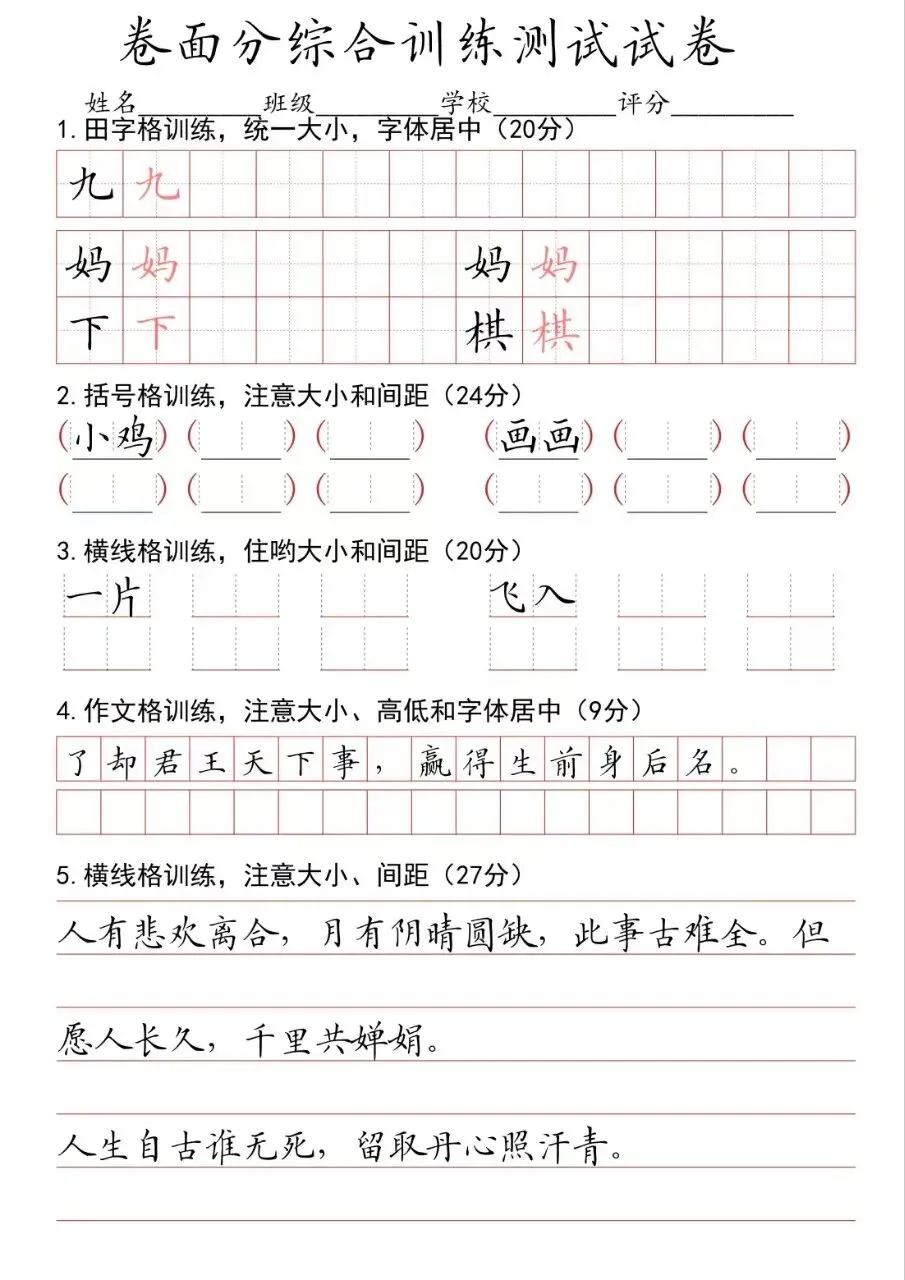 卷面分综合训练测试试卷
姓名________班级________学校________评分________
1.田字格训练，统一大小，字体居中（20分）
九 九
妈 妈 妈 妈
下 下 棋 棋
2.括号格训练，注意大小和间距（24分）
（小鸡）（ ）（ ）（画画）（ ）（ ）
（ ）（ ）（ ）（ ）（ ）（ ）
3.横线格训练，住哟大小和间距（20分）
一片 飞入
4.作文格训练，注意大小、高低和字体居中（9分）
了却君王天下事，赢得生前身后名。
5.横线格训练，注意大小、间距（27分）
人有悲欢离合，月有阴晴圆缺，此事古难全。但
愿人长久，千里共婵娟。
人生自古谁无死，留取丹心照汗青。